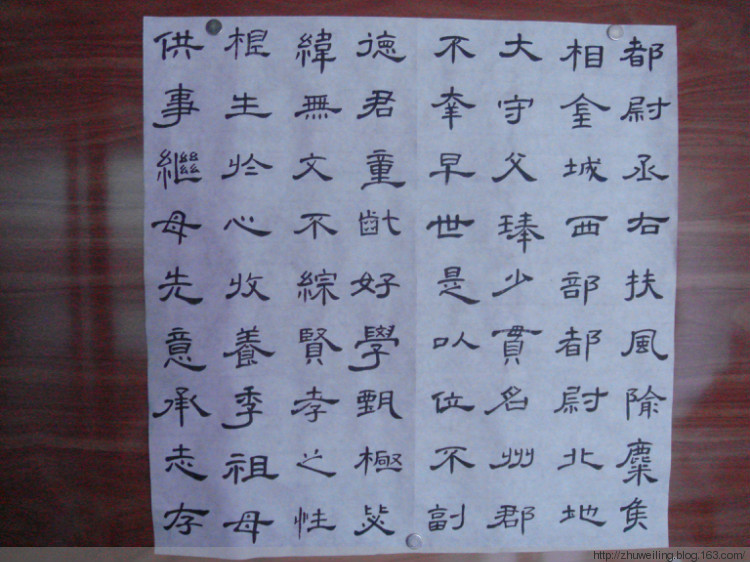 都尉丞右扶風隃麋侯
相金城西部都尉北地
大守父琫少貫名州郡
不幸早世是以位不副
德君童齔好學甄極毖
緯無文不綜賢孝之性
根生於心收養季祖母
供事繼母先意承志存
http://zhuweiling.blog.163.com/